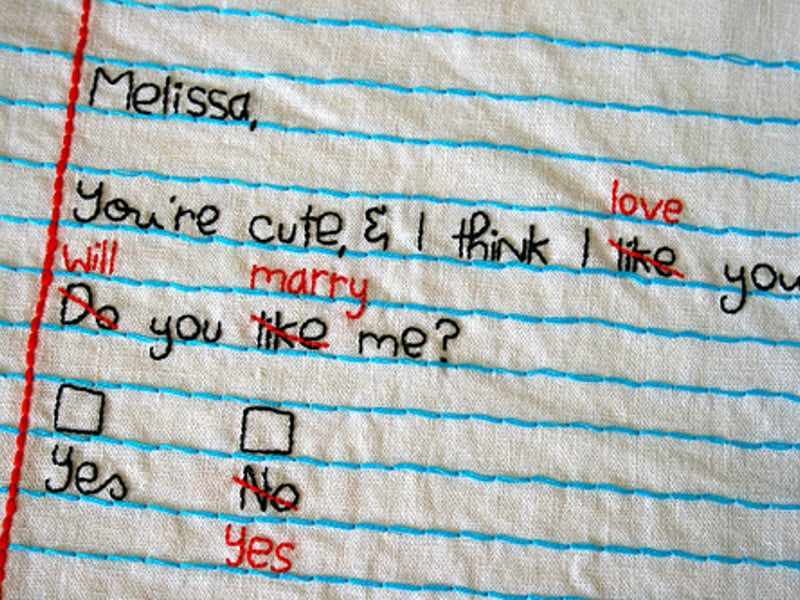 Melissa,
love
You're cute, & I think I like you
will marry
Do you like me?
Yes No
yes